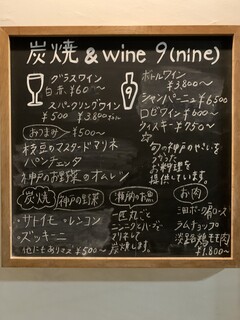 炭焼 & wine 9(nine)
グラスワイン
白 赤 ¥600〜
スパークリングワイン
¥500 ¥3,800
ボトルワイン
¥3,800〜
シャンパーニュ ¥6,500
ロゼワイン ¥600〜
ウィスキー ¥750〜
おつまみ ¥500〜
枝豆のマスタードマリネ
パンチェッタ
神戸のお野菜のオムレツ
旬の神戸のやさいを
お料理を
提供しています。
炭焼 神戸の野菜
・サトイモ ・レンコン
・ズッキーニ
他にもあります ¥500〜
瀬戸内のお魚
一匹丸ごと
ニンニクとハーブで
マリネして
炭焼します。
お肉
三田ポーク肩ロース
ラムチョップ
淡路鶏モモ肉
¥1,800〜